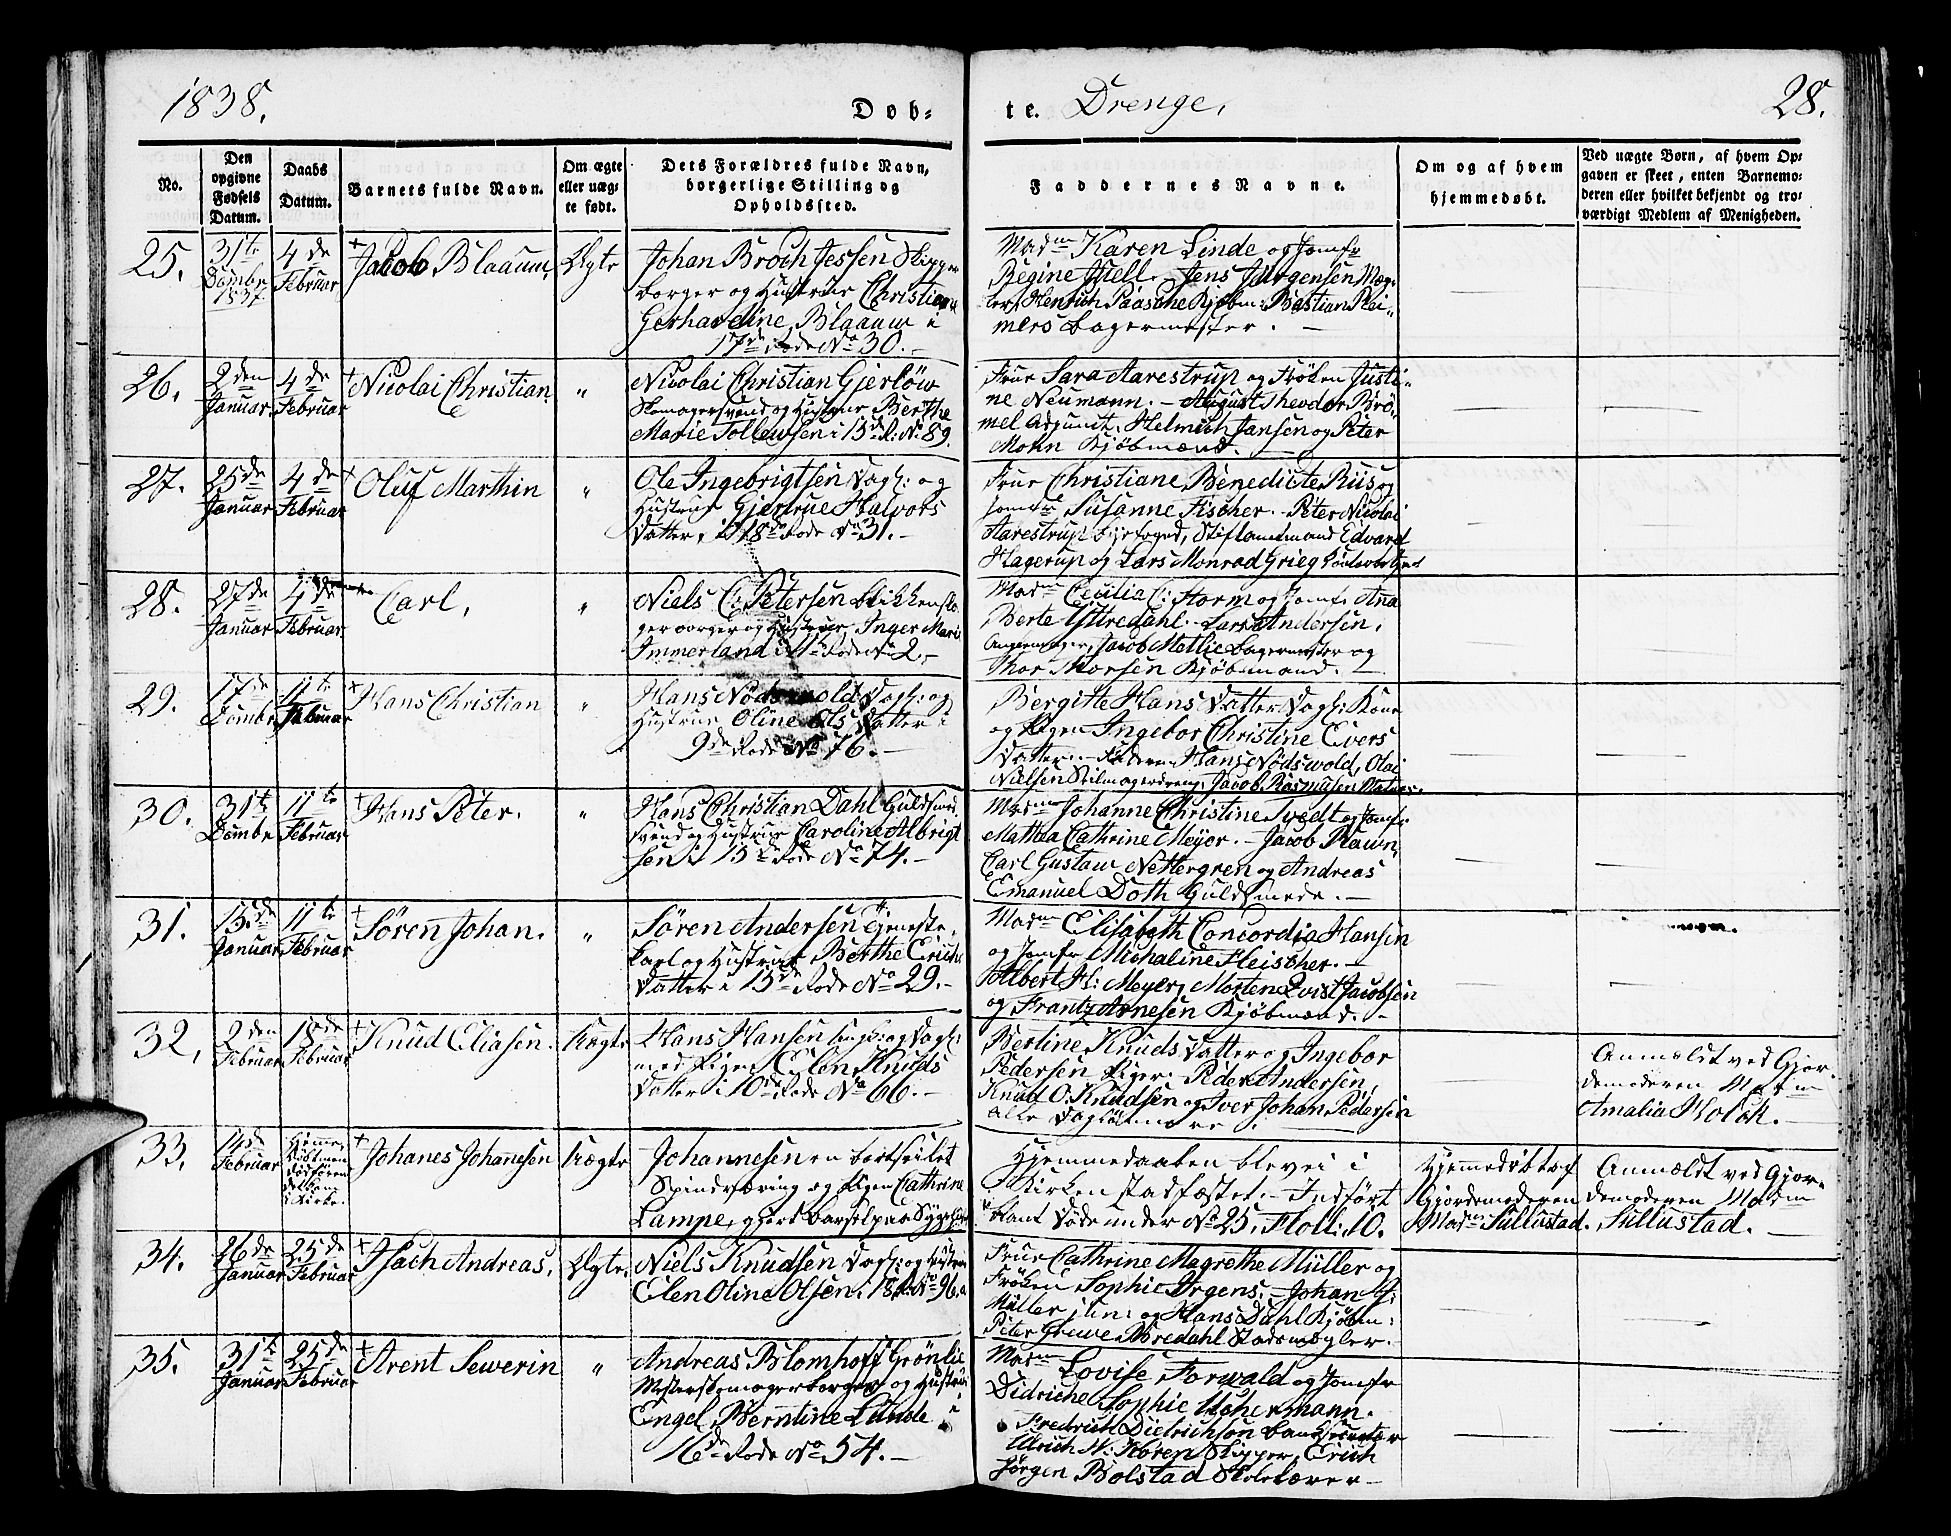 1838.
Døb-
te. Drenge,
28.
No.
Den opgivne Fødsels Datum.
Daabs Datum.
Barnets fulde Navn.
Om ægte eller uæg-
te født.
Dets Forældres fulde Navn,
borgerlige Stilling og
Opholdssted.
Faddernes Navne.
Om og af hvem
hjemmedøbt.
Ved uægte Børn, af hvem Op-
gaven er skeet, enten Barnemo-
deren eller hvilket bekjendt og tro-
værdigt Medlem af Menigheden.
25. 31te Dcmbr 1837 4de Februar + Jacob Blaauw, Ægte
Johan Broch Jessen Skipper
borger og Hustrue Christiane
Gerhardine Blaauw i
17de Rode No 30. -
Madme Karen Linde og Jomfr
Regine Juell. Jens Jürgensen Mæg-
ler, Henrich Paasche Kjøbm: Bastian Rei-
mers bagermester. -
26. 2den Januar 4de Februar + Nicolai Christian "
Nicolai Christian Gierløw
Skomagersvend og Hustrue Berthe
Marie Tollewsen i 15de R: No 89.
Frue Sara Aarestrup og Frøken Justi-
ne Neumann. - August Theodor Brø-
mel Adjunct, Helmich Jansen og Peter
Mohn Kjøbmænd. -
27. 25de Januar 4de Februar + Oluf Marthin "
Ole Ingebrigtsen Dagl: og
Hustrue Gjertrue Halvors
Datter, i 18de Rode No 31. -
Frue Christiane Benedicte Riis og
Jomfr Susanne Fischer. - Peter Nicolai
Aarestrup Byefoged, Stiftamtmand Edvard
Hagerup og Lars Monrad Grieg
28. 27de Januar 4de Februar Carl, "
Niels C: Petersen Blikkensla-
ger borger og Hustrue Inger Marie
Immerland i Rode No 2. -
Madme Cecilia C: Storm og Jomfr Ana
Berte Ystredahl. Lars Andersen,
Jacob Metlie bagermester og
Thor Morsen Kjøbmand. -
29. 17de Dcmbr 11te Februar + Hans Christian "
Hans Nødswold Dagl: og
Hustrue Oline Ols Datter i
9de Rode No 76. -
Bergitte Hans Datter Dagl: Kone
og Pigen Ingebor Christine Evers
Datter. - Faderen Hans Nødswold, Olai
Nielsen Seilmagerdreng, Jacob Rasmusen Matros.
30. 31te Dcmbr 11te Februar + Hans Peter. "
Hans Christian Dahl Guldsmed
Svend og Hustrue Caroline Albrigt
sen i 15de Rode No 74. -
Madme Johanne Christine Tvedt og Jomfr
Mattha Cathrine Meyer. - Jacob Rawn,
Carl Gustaw Nettergren og Andreas
Emanuel Doth Guldsmede. -
31. 15de Januar 11te Februar + Søren Johan. "
Søren Andersen Tjeneste-
karl og Hustrue Berthe Erichs
Datter i 15de Rode No 29. -
Madme Elisabeth Concordia Hansen
og Jomfr Michaline Fleischer. -
Albert H: Meyer, Morten Qvist Jacobsen
og Frantz Arnesen Kjøbmænd. -
32, 2den Februar 18de Februar + Knud Eliasen. Uægte
Hans Hansen ungk: og Dagl:
med Pigen Eilen Knuds
Datter i 10de Rode No 66. -
Bertine Knuds Datter og Ingebor
Pedersen Piger. Peder Andersen,
Knud O: Knudsen og Iver Johan Pedersen
alle Dagløhnere.
Anmeldt ved Gjor-
demoderen Madme
Amalia Holck. -
33. 14de Februar Hjemme-
døbt men
død føren
det kom
i Kirke. + Johanes Johanesen Uægte
Johannesen en
og Pigen Cathrine
Lampe, gjort barsel paa Sygehuset
Hjemmedaaben blev ei i
Kirken stadfæstet. - Indført
blant Døde under No 25, Foll: 10.
Hjemmedøbt af
Gjordemoderen
Madme Sullustad.
Anmeldt ved Gjor-
demoderen Madme
Sullustad. -
34. 26de Januar 25de Februar + Isach Andreas, Ægte.
Niels Knudsen Dagl: og Hustrue
Eilen Oline Olsen i 18de R: No 96.
Frue Cathrine Magrethe Müller og
Frøken Sophie Irgens; Johan G:
Müller jun: og Hans Dahl Kjøbm:
Peter Grewe Bredahl Stadsmægler.
35. 31te Januar 25de Februar + Arent Sewerin "
Andreas Blomhoff Grønlie
Mesterskomager borger og Hustrue
Engel Berntine Lunde i
16de Rode No 54. -
Madme Lovise Forwald og Jomfr
Didriche Sophie Uchermann.
Fredrich Dietrichson
Ulrich W: Koren Skipper, Erich
Jørgen Bolstad Skolelærer -